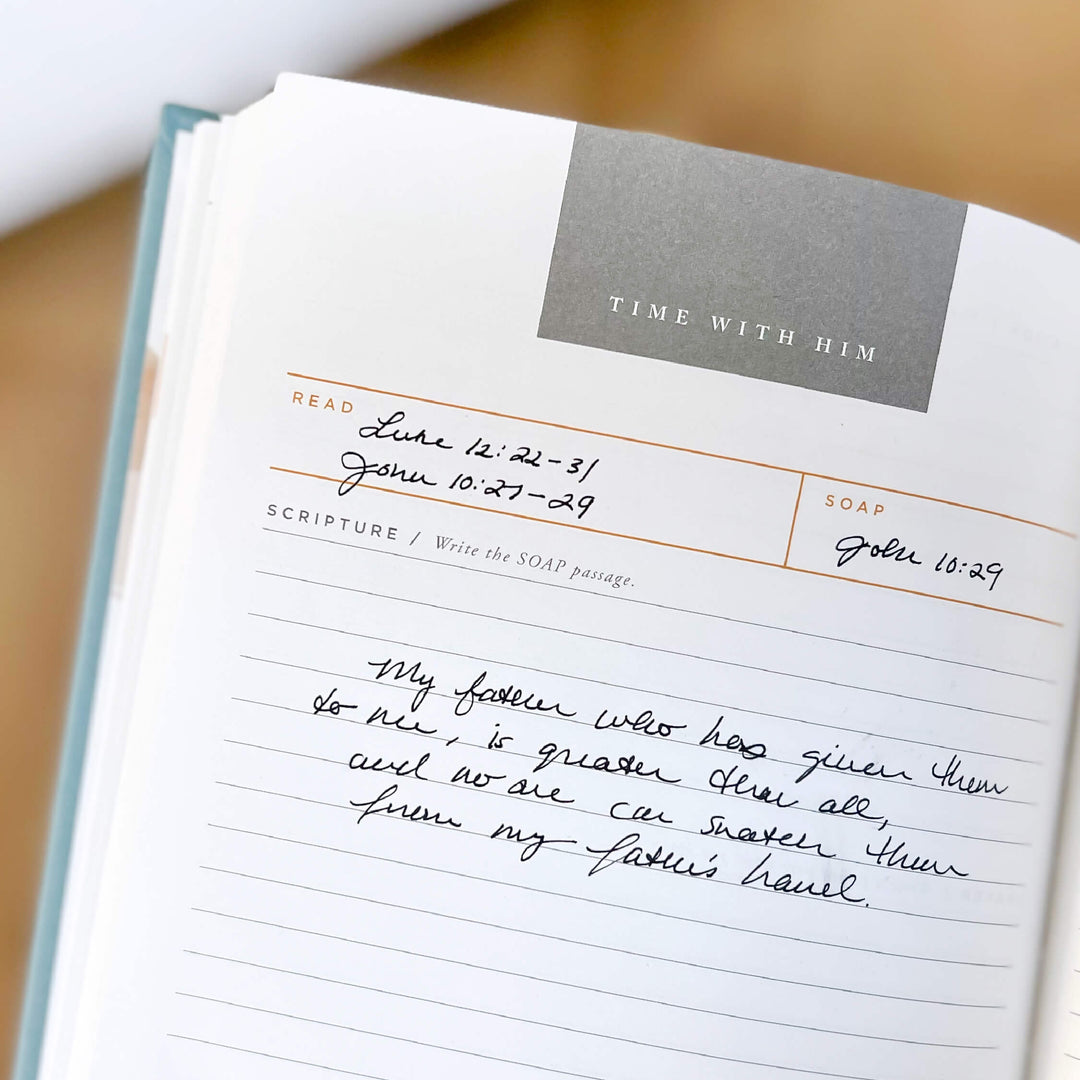 TIME WITH HIM
READ
Luke 12:22-31
John 10:27-29
SOAP
John 10:29
SCRIPTURE / Write the SOAP passage.
My father who has given them
to me, is greater than all,
and no one can snatch them
from my father's hand.